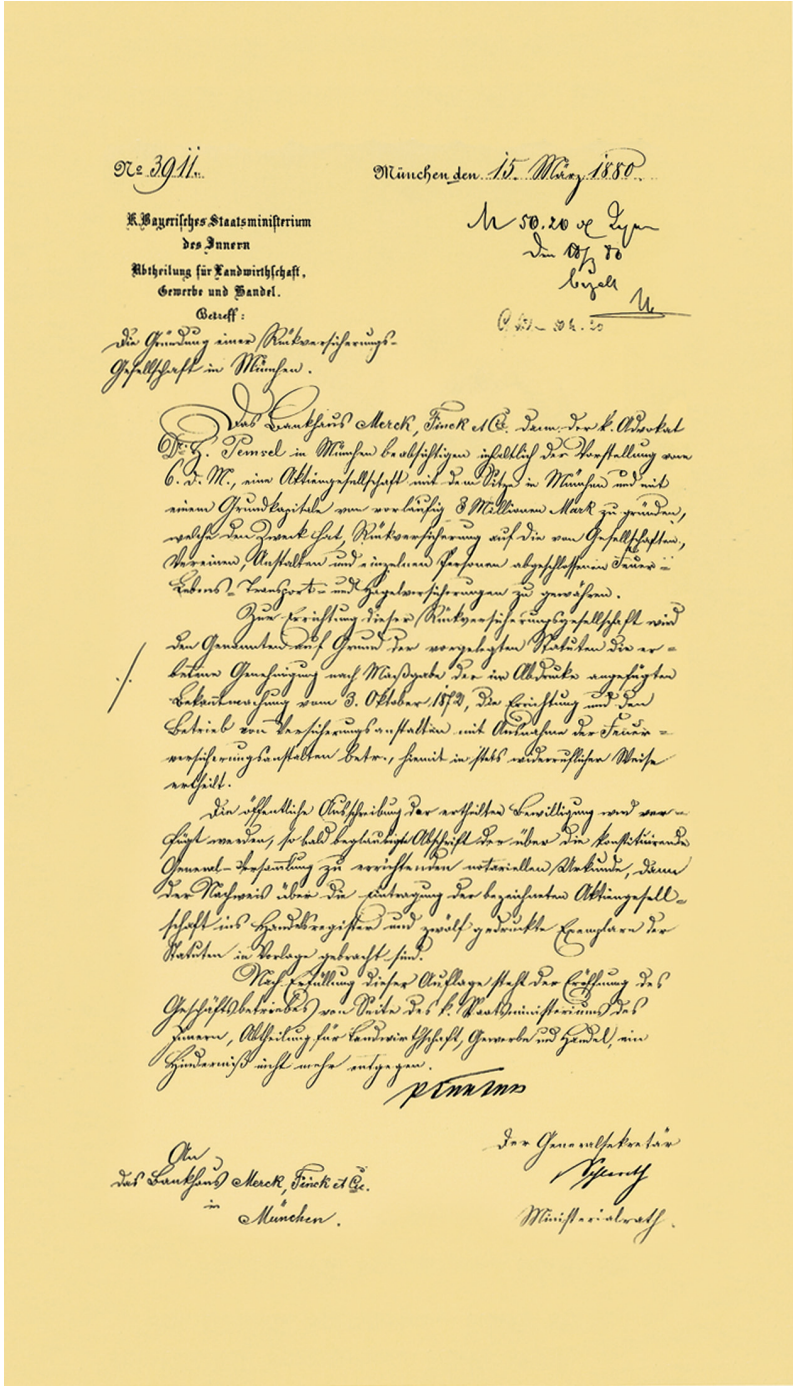 No 3911.
München den 15. März 1880.
K. Bayerisches Staatsministerium
des Innern
Abtheilung für Landwirthschaft,
Gewerbe und Handel.
Betreff:
Die Gründung einer Rükversicherungs-
Gesellschaft in München.
M 50.20
bezalt
Das Bankhaus Merck, Finck et Co. dann der k. Advokat
Dr. H. Pemsel in München beabsichtigen inhaltlich der Vorstellung vom
6. d. M., eine Aktiengesellschaft mit dem Sitze in München und mit
einem Grundkapitale von vorläufig 3 Millionen Mark zu gründen,
welche den Zweck hat, Rükversicherung auf die von Gesellschaften,
Vereinen, Anstalten und einzelnen Personen abgeschlossenen Feuer-
Lebens- Transport- und Hagelversicherungen zu gewähren.
Zur Errichtung dieser Rükversicherungsgesellschaft wird
den Genannten auf Grund der vorgelegten Statuten die er-
betene Genehmigung nach Maßgabe der im Abdruke angefügten
Bekanntmachung vom 3. Oktober 1872, die Errichtung und den
Betrieb von Versicherungsanstalten mit Ausnahme der Feuer-
versicherungsanstalten betr., hiemit in stets widerruflicher Weise
ertheilt.
Die öffentliche Ausschreibung der ertheilten Bewilligung wird ver-
fügt werden, so bald beglaubigte Abschrift der über die konstituirende
General-Versammlung zu errichtenden notariellen Urkunde, dann
der Nachweis über die Eintragung der bezeichneten Aktiengesell-
schaft ins Handelsregister und zwölf gedruckte Exemplare der
Statuten in Vorlage gebracht sind.
Nach Erfüllung dieser Auflage steht der Eröffnung des
Geschäftsbetriebes von Seite des k. Staatsministeriums des
Innern, Abtheilung für Landwirthschaft, Gewerbe und Handel, ein
Hinderniß nicht mehr entgegen.
Der Generalsekretär
Ministerialrath.
An
das Bankhaus Merck, Finck et Co.
in
München.